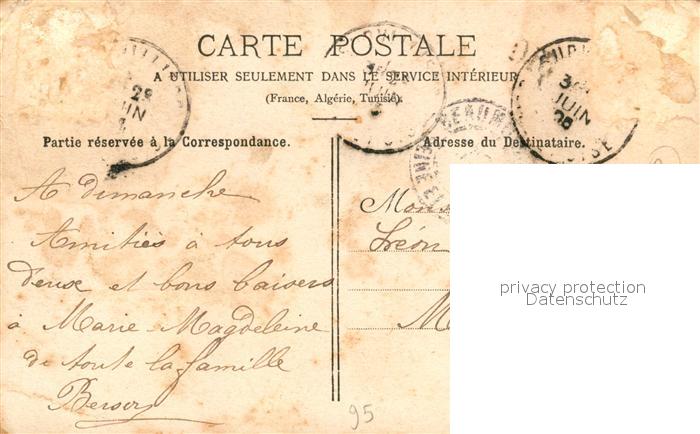 CARTE POSTALE
A UTILISER SEULEMENT DANS LE SERVICE INTÉRIEUR
(France, Algérie, Tunisie).
29
JUIN
JUIN
OISE
BEAUM
Partie réservée à la Correspondance.
Adresse du Destinataire.
A dimanche
Amitiés à tous
deux et bons baisers
à Marie-Magdeleine
de toute la famille
Léon
privacy protection
Datenschutz
95